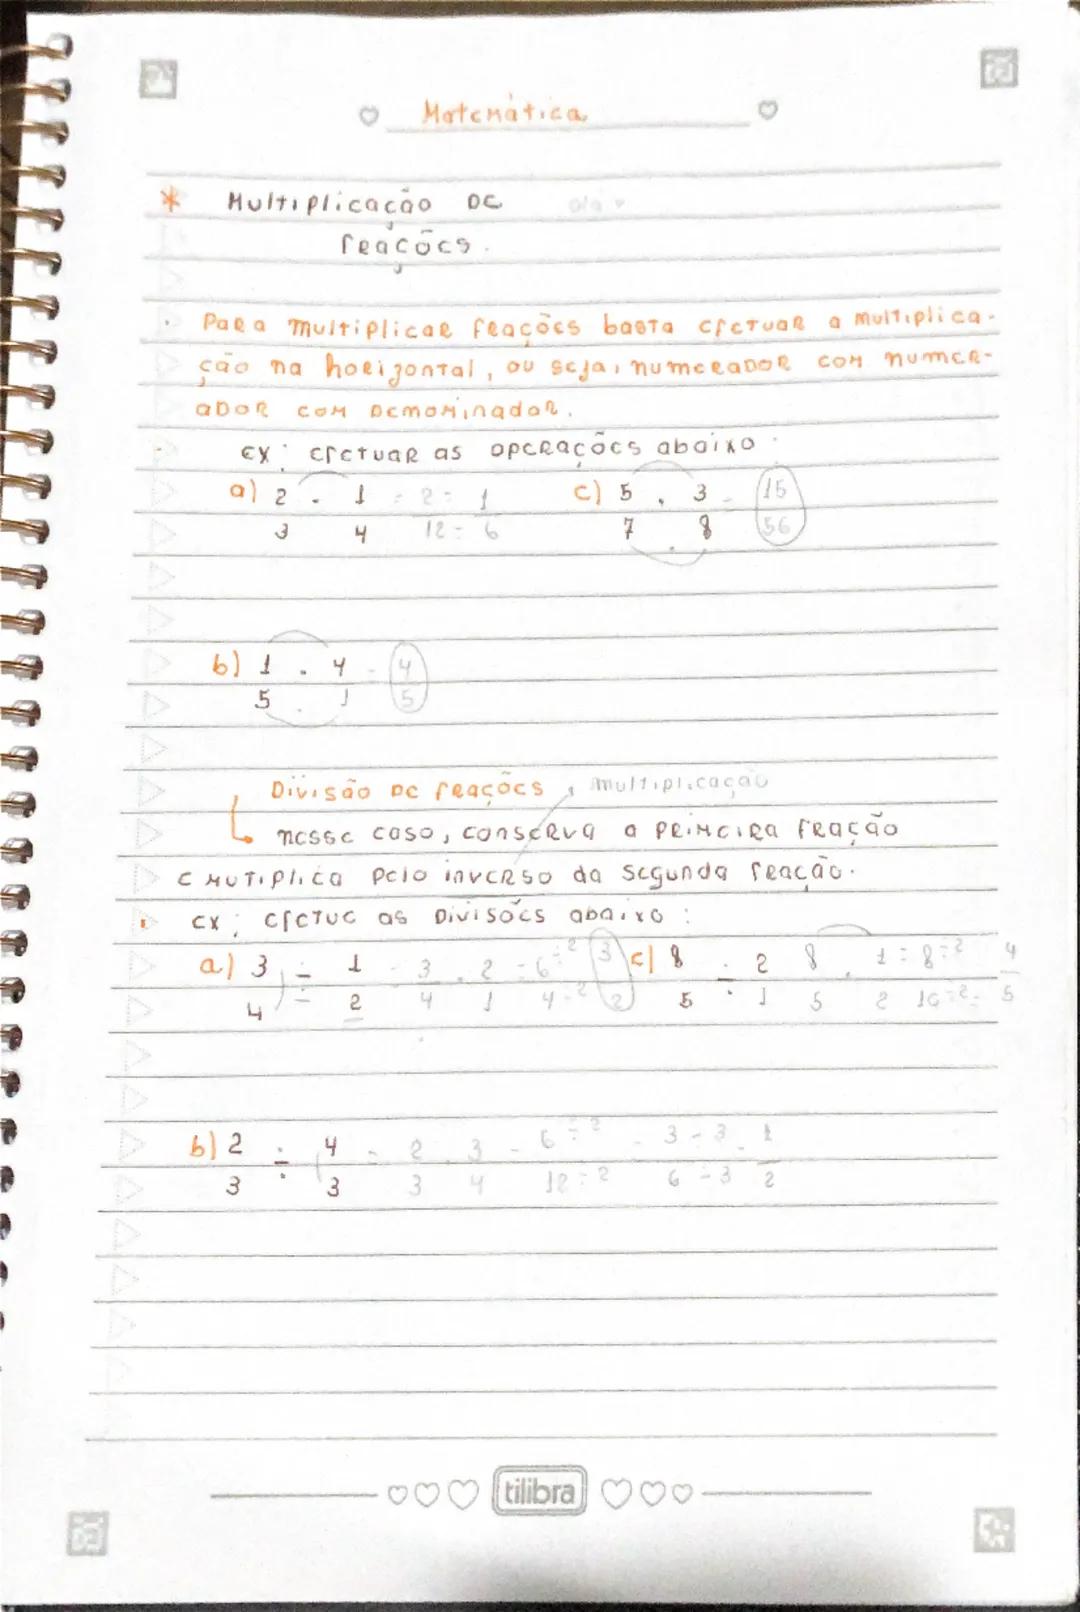 Matemática
* Multiplicação De
frações.
. Para multiplicar frações basta efetuar a multiplica-
ção na horizontal, ou seja, numerador com numer-
ador com Demominador.
Ex: efetuar as operações abaixo:
a) 2 . 1 = 2 = 1 c) 5 . 3 = 15
3 4 12 = 6 7 . 8 56
b) 1 . 4 = 4
5 . 1 5
Divisão De frações , multiplicação
nesse caso, conserva a primeira fração
e mutiplica pelo inverso da segunda fração.
Ex: efetue as Divisões abaixo:
a) 3 ÷ 1 = 3 . 2 = 6÷2 3 c) 8 ÷ 2 8 . 1 = 8÷2 4
4 ÷ 2 4 1 4÷2 2 5 1 5 2 10÷2= 5
b) 2 ÷ 4 = 2 . 3 = 6÷2 = 3÷3 = 1
3 3 3 4 12÷2 6÷3 2
tilibra